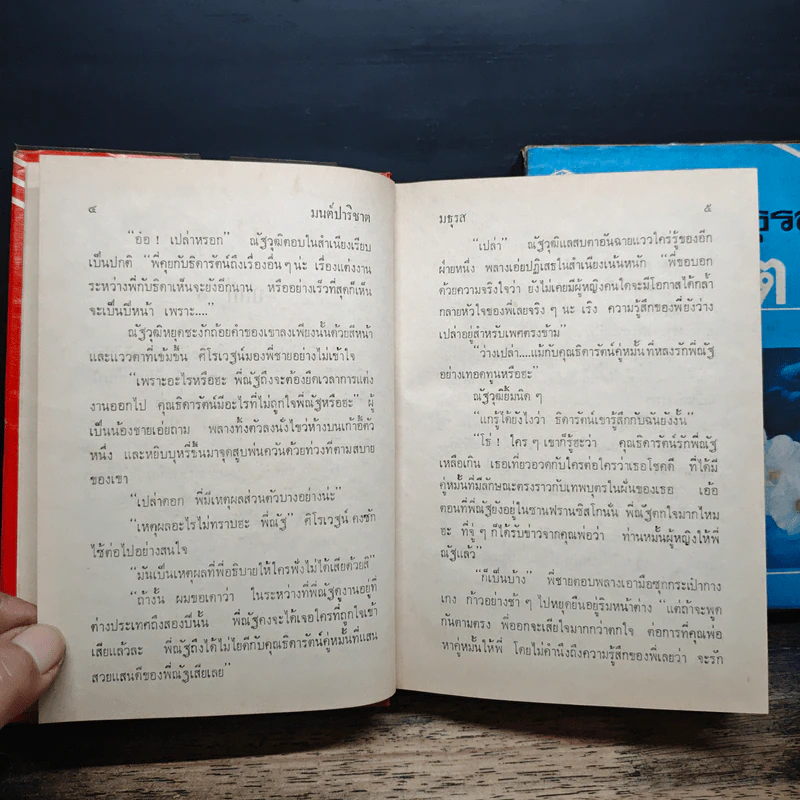 ๔ มนต์ปาริชาต
“อ๋อ ! เปล่าหรอก” ณัฐวุฒิตอบในสำเนียงเรียบ
เป็นปกติ “พี่คุยกับธิดารัตน์ถึงเรื่องอื่นๆน่ะ เรื่องแต่งงาน
ระหว่างพี่กับธิดาเห็นจะยังอีกนาน หรืออย่างเร็วที่สุดก็เห็น
จะเป็นปีหน้า เพราะ....”
ณัฐวุฒิหยุดชะงักถ้อยคำของเขาลงเพียงนั้นด้วยสีหน้า
และแววตาที่เข้มขึ้น ศิโรเวฐน์มองพี่ชายอย่างไม่เข้าใจ
“เพราะอะไรหรือฮะ พี่ณัฐถึงจะต้องยืดเวลาการแต่ง
งานออกไป คุณธิดารัตน์มีอะไรที่ไม่ถูกใจพี่ณัฐหรือฮะ” ผู้
เป็นน้องชายเอ่ยถาม พลางทิ้งตัวลงนั่งไขว่ห้างบนเก้าอี้ตัว
หนึ่ง และหยิบบุหรี่ขึ้นมาจุดสูบพ่นควันด้วยท่วงทีตามสบาย
ของเขา
“เปล่าดอก พี่มีเหตุผลส่วนตัวบางอย่างน่ะ”
“เหตุผลอะไรไม่ทราบฮะ พี่ณัฐ” ศิโรเวฐน์ คงซัก
ไซ้ต่อไปอย่างสนใจ
“มันเป็นเหตุผลที่พี่อธิบายให้ใครฟังไม่ได้เสียด้วยสิ”
“ถ้างั้น ผมขอเดาว่า ในระหว่างที่พี่ณัฐดูงานอยู่ที่
ต่างประเทศถึงสองปีนั้น พี่ณัฐคงจะได้เจอใครที่ถูกใจเข้า
เสียแล้วละ พี่ณัฐถึงได้ไม่ไยดีกับคุณธิดารัตน์คู่หมั้นที่แสน
สวยแสนดีของพี่ณัฐเสียเลย”
มธุรส ๕
“เปล่า” ณัฐวุฒิแลสบตาอันฉายแววใคร่รู้ของอีก
ฝ่ายหนึ่ง พลางเอ่ยปฏิเสธในสำเนียงเน้นหนัก “พี่ขอบอก
ด้วยความจริงใจว่า ยังไม่เคยมีผู้หญิงคนใดจะมีโอกาสได้กล้ำ
กลายหัวใจของพี่เลยจริงๆ นะ เริง ความรู้สึกของพี่ยังว่าง
เปล่าอยู่สำหรับเพศตรงข้าม”
“ว่างเปล่า....แม้กับคุณธิดารัตน์คู่หมั้นที่หลงรักพี่ณัฐ
อย่างเทอดทูนหรือฮะ”
ณัฐวุฒิยิ้มนิดๆ
“แกรู้ได้ยังไงว่า ธิดารัตน์เขารู้สึกกับฉันยังงั้น”
“โธ่ ! ใครๆเขาก็รู้ฮะว่า คุณธิดารัตน์รักพี่ณัฐ
เหลือเกิน เธอเที่ยวอวดกับใครต่อใครว่าเธอโชคดี ที่ได้มี
คู่หมั้นที่มีลักษณะตรงราวกับเทพบุตรในฝันของเธอ เอ้อ
ตอนที่พี่ณัฐยังอยู่ในซานฟรานซิสโกนั่น พี่ณัฐตกใจมากไหม
ฮะ ที่จู่ๆก็ได้รับข่าวจากคุณพ่อว่า ท่านหมั้นผู้หญิงให้พี่
ณัฐแล้ว”
“ก็เป็นบ้าง” พี่ชายตอบพลางเอามือซุกกระเป๋ากาง
เกง ก้าวอย่างช้าๆ ไปหยุดยืนอยู่ริมหน้าต่าง “แต่ถ้าจะพูด
กันตามตรง พี่ออกจะเสียใจมากกว่าตกใจ ต่อการที่คุณพ่อ
หาคู่หมั้นให้พี่ โดยไม่คำนึงถึงความรู้สึกของพี่เลยว่า จะรัก